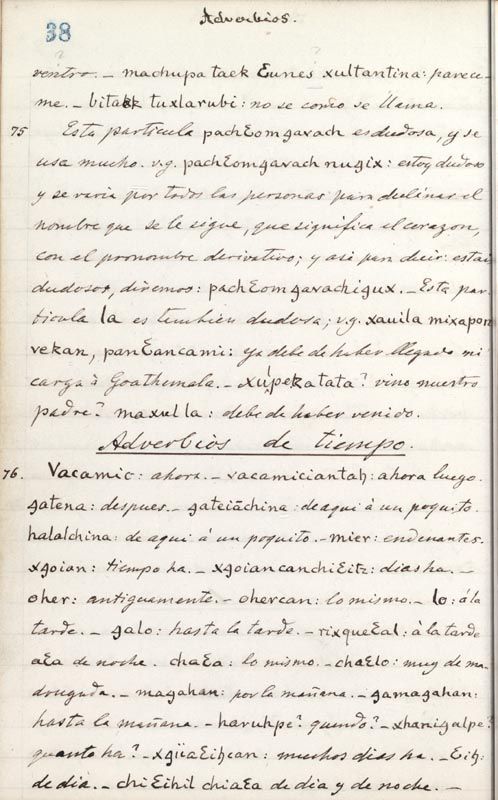 Adverbios.
38
ventro. – machupa taek Ɛunes xultantina: parece-
me. – bitakk tuxlarubi: no se como se llama.
75 Esta particula pachƐomgavach es dudosa, y se
usa mucho. v.g. pachƐomgavach nugix: estoy dudoso
y se varia por todas las personas para declinar el
nombre que se le sigue, que significa el corazon,
con el pronombre derivativo; y asi para decir: estais
dudosos, diremos: pachƐomgavachigux. – Esta par-
ticula la es tambien dudosa; v.g. xauila mixapon
vekan, panƐancami: ya debe de haber llegado mi
carga à Goathemala. – xúpekatata? vino nuestro
padre? maxulla: debe de haber venido.
Adverbios de tiempo.
76. Vacamic: ahora. – vacamiciantaḥ: ahora luego.
gatena: despues. – gateiāchina: de aqui à un poquito.
halalchina: de aqui à un poquito. – mier: endenantes.
xgoian: tiempo ha. – xgoiancanchiƐitz: dias ha. –
oher: antiguamente. – ohercan: lo mismo. – lo: à la
tarde. – galo: hasta la tarde. – rixqueƐal: à la tarde
aƐa de noche. chaƐa: lo mismo. – chaƐlo: muy de ma-
drugada. – magahan: por la mañana. – gamagahan:
hasta la mañana. – haruhpe? quando? – xhanigalpe?
quanto ha? – xgüaƐiḥcan: muchos dias ha. – Ɛiḥ:
de dia. – chiƐihil chiaƐa de dia y de noche. –